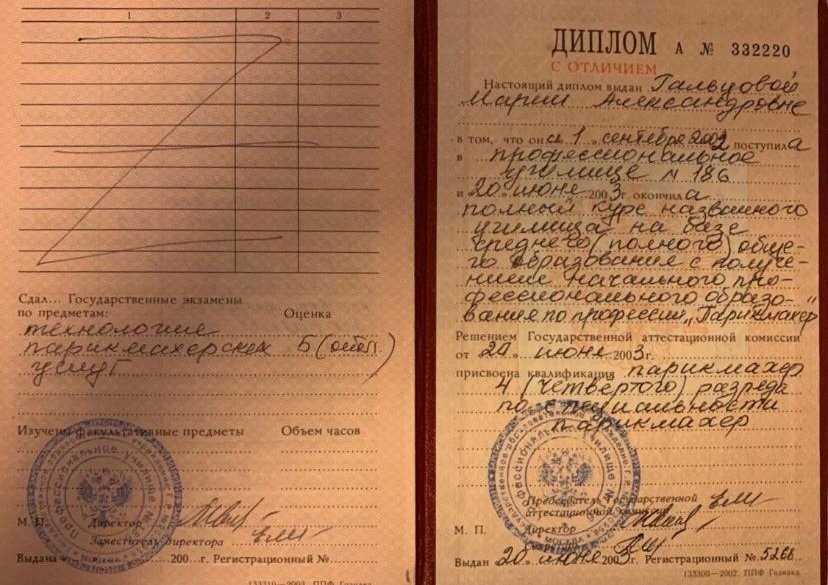 1 2 3
Сдал... Государственные экзамены
по предметам: Оценка
технология
парикмахерских 5 (отл.)
услуг
Изучены факультативные предметы Объем часов
М. П. Директор
Заместитель директора
Выдана 200 г. Регистрационный №
ДИПЛОМ А № 332220
С ОТЛИЧИЕМ
Настоящий диплом выдан Гальцовой
Марии Александровне
в том, что она 1 сентября 2002 поступила
в профессиональное
училище N 186
и 20 июня 2003 г. окончила
полный курс названного
училища на базе
среднего (полного) обще-
го образования с получе-
нием начального про-
фессионального образо-
вания по профессии "Парикмахер"
Решением Государственной аттестационной комиссии
от 20 июня 2003 г.
присвоена квалификация парикмахер
4 (четвертого) разряда
по специальности
парикмахер
Председатель Государственной
аттестационной комиссии
Директор
М. П.
Выдан 20 июня 2003 г. Регистрационный № 5268